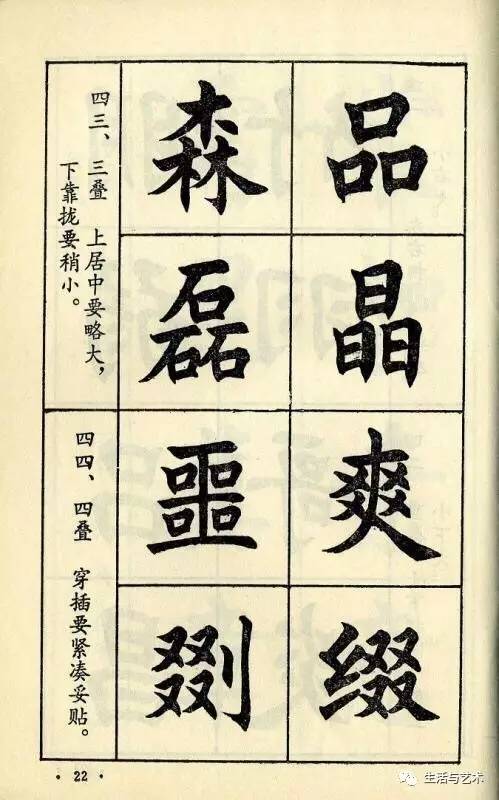 品
晶
爽
缀
森
磊
噩
剟
四三、三叠 上居中要略大，
下靠拢要稍小。
四四、四叠 穿插要紧凑妥贴。
· 22 ·
生活与艺术